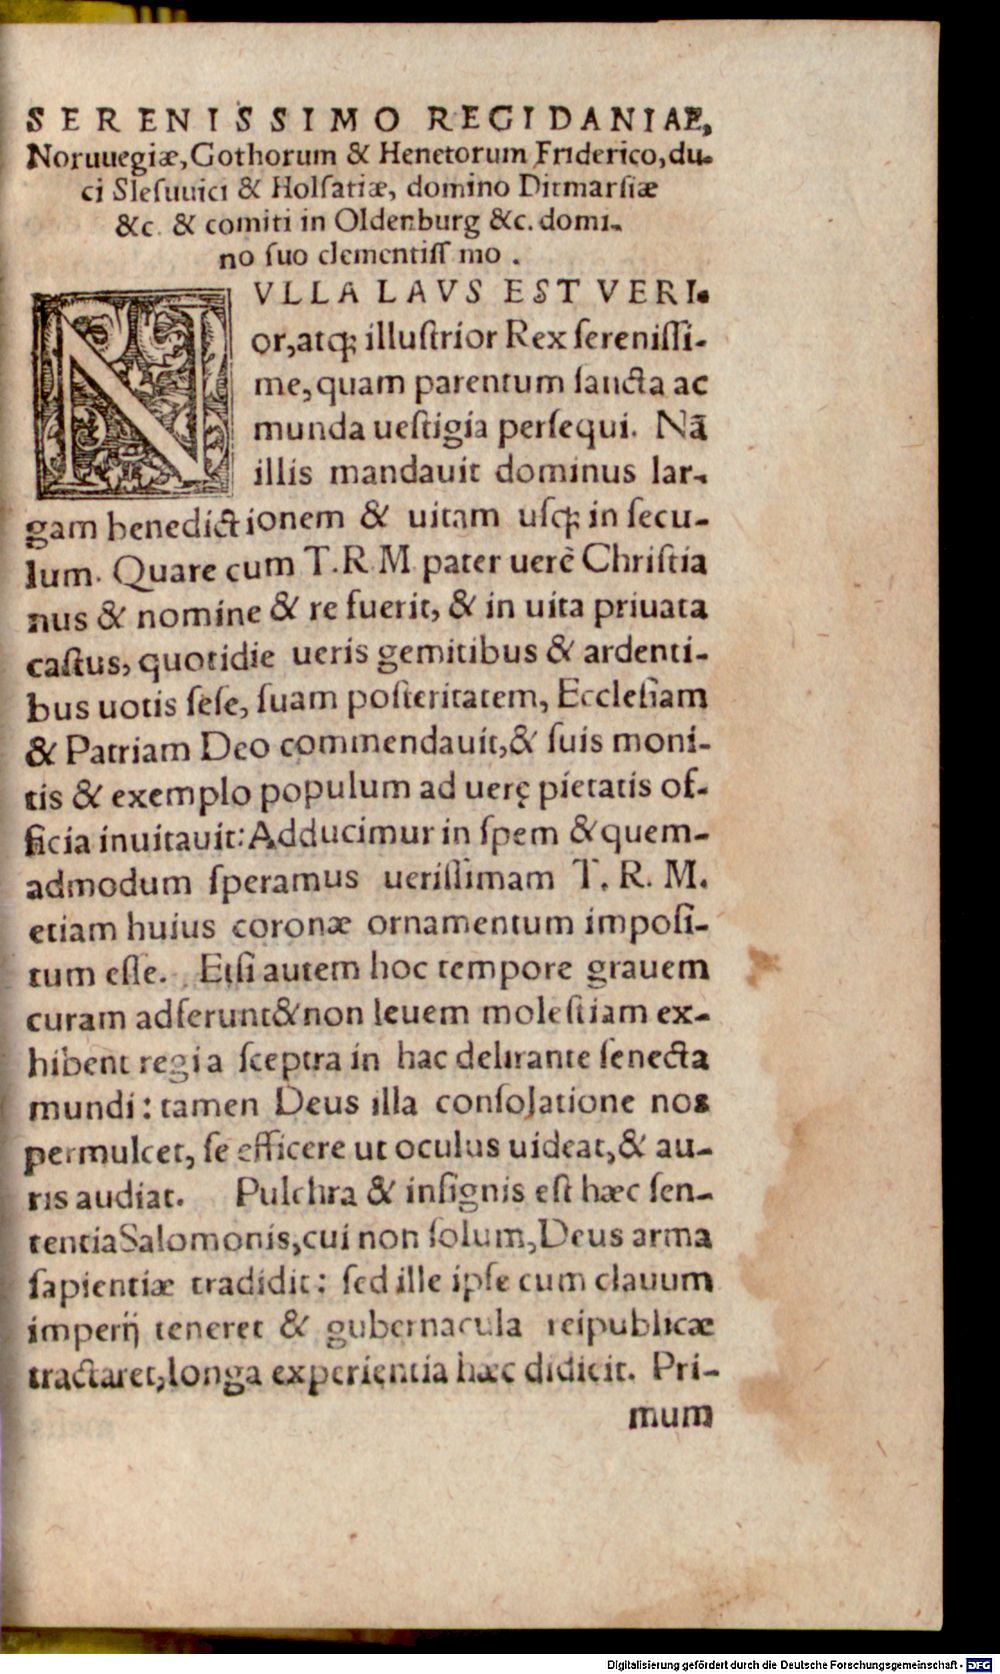 SERENISSIMO REGI DANIAE,
Noruuegiæ, Gothorum & Henetorum Friderico, du-
ci Slesuuici & Holſatiæ, domino Ditmarſiæ
&c. & comiti in Oldenburg &c. domi-
no ſuo clementiſſ mo.
NVLLA LAVS EST VERI-
or, atq; illuſtrior Rex ſereniſſi-
me, quam parentum ſancta ac
munda ueſtigia perſequi. Nã
illis mandauit dominus lar-
gam benedictionem & uitam uſq; in ſecu-
lum. Quare cum T.R.M. pater uerè Chriſtia
nus & nomine & re fuerit, & in uita priuata
caſtus, quotidie ueris gemitibus & ardenti-
bus uotis ſeſe, ſuam poſteritatem, Eccleſiam
& Patriam Deo commendauit, & ſuis moni-
tis & exemplo populum ad uerę pietatis of-
ficia inuitauit: Adducimur in ſpem & quem-
admodum ſperamus ueriſſimam T. R. M.
etiam huius coronæ ornamentum impoſi-
tum eſſe. Etſi autem hoc tempore grauem
curam adferunt & non leuem moleſtiam ex-
hibent regia ſceptra in hac delirante ſenecta
mundi: tamen Deus illa conſolatione nos
permulcet, ſe efficere ut oculus uideat, & au-
ris audiat. Pulchra & inſignis eſt hæc ſen-
tentia Salomonis, cui non ſolum, Deus arma
ſapientiæ tradidit: ſed ille ipſe cum clauum
imperij teneret & gubernacula reipublicæ
tractaret, longa experientia hæc didicit. Pri-
mum
Digitalisierung gefördert durch die Deutsche Forschungsgemeinschaft - DFG